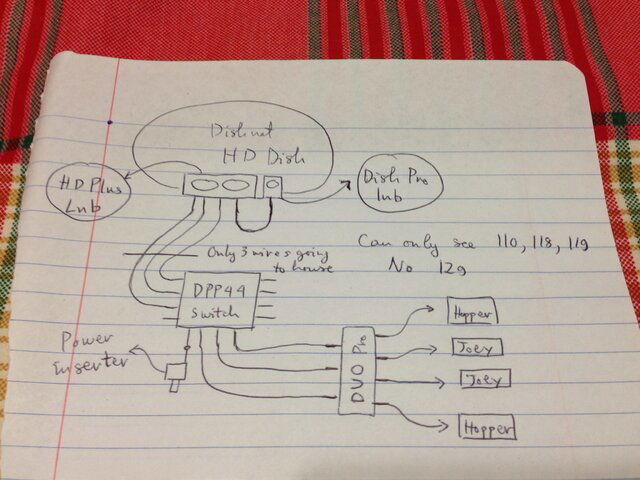 Dishnet
HD Dish
HD Plus
Lnb
Dish Pro
lnb
Only 3 wires going
to house
Can only see 110, 118, 119
No 129
DPP44
Switch
Power
Inserter
DUO Pro
Hopper
Joey
Joey
Hopper